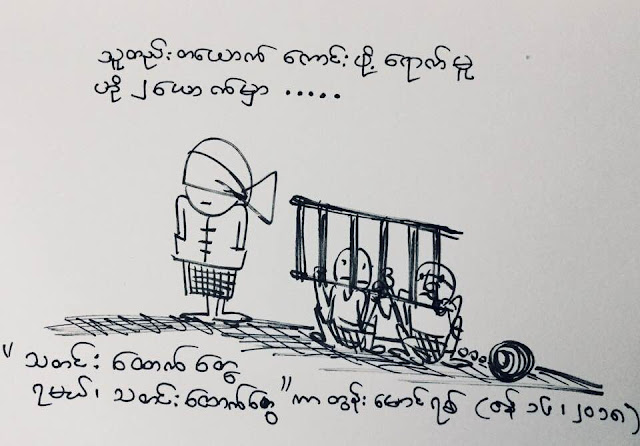 သူတည်းတယောက် ကောင်းဖို့ ရောက်မူ
ဟို ၂ ယောက်မှာ .....
"သတင်း ထောက်တွေ
ရမယ်၊ သတင်းထောက်တွေ" ကာတွန်း မောင်ရစ် (ဇန် ၁၆၊ ၂၀၁၈)